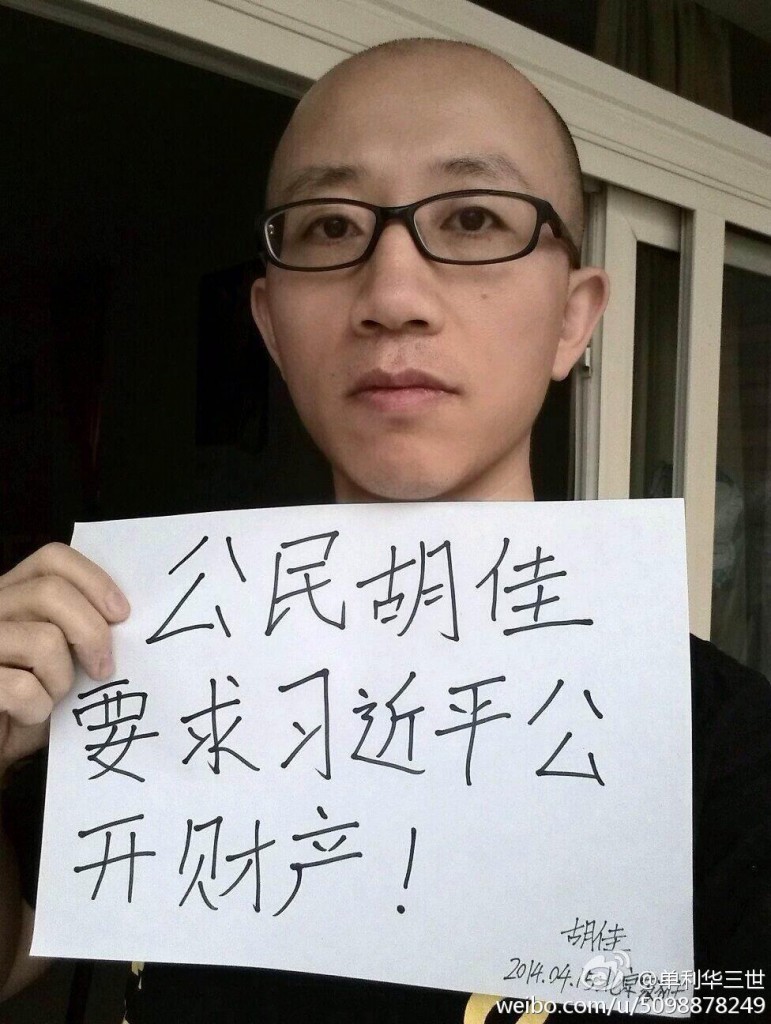 公民胡佳
要求习近平公
开财产！
胡佳
2014.04.15 北京
@单利华三世
weibo.com/u/5098878249